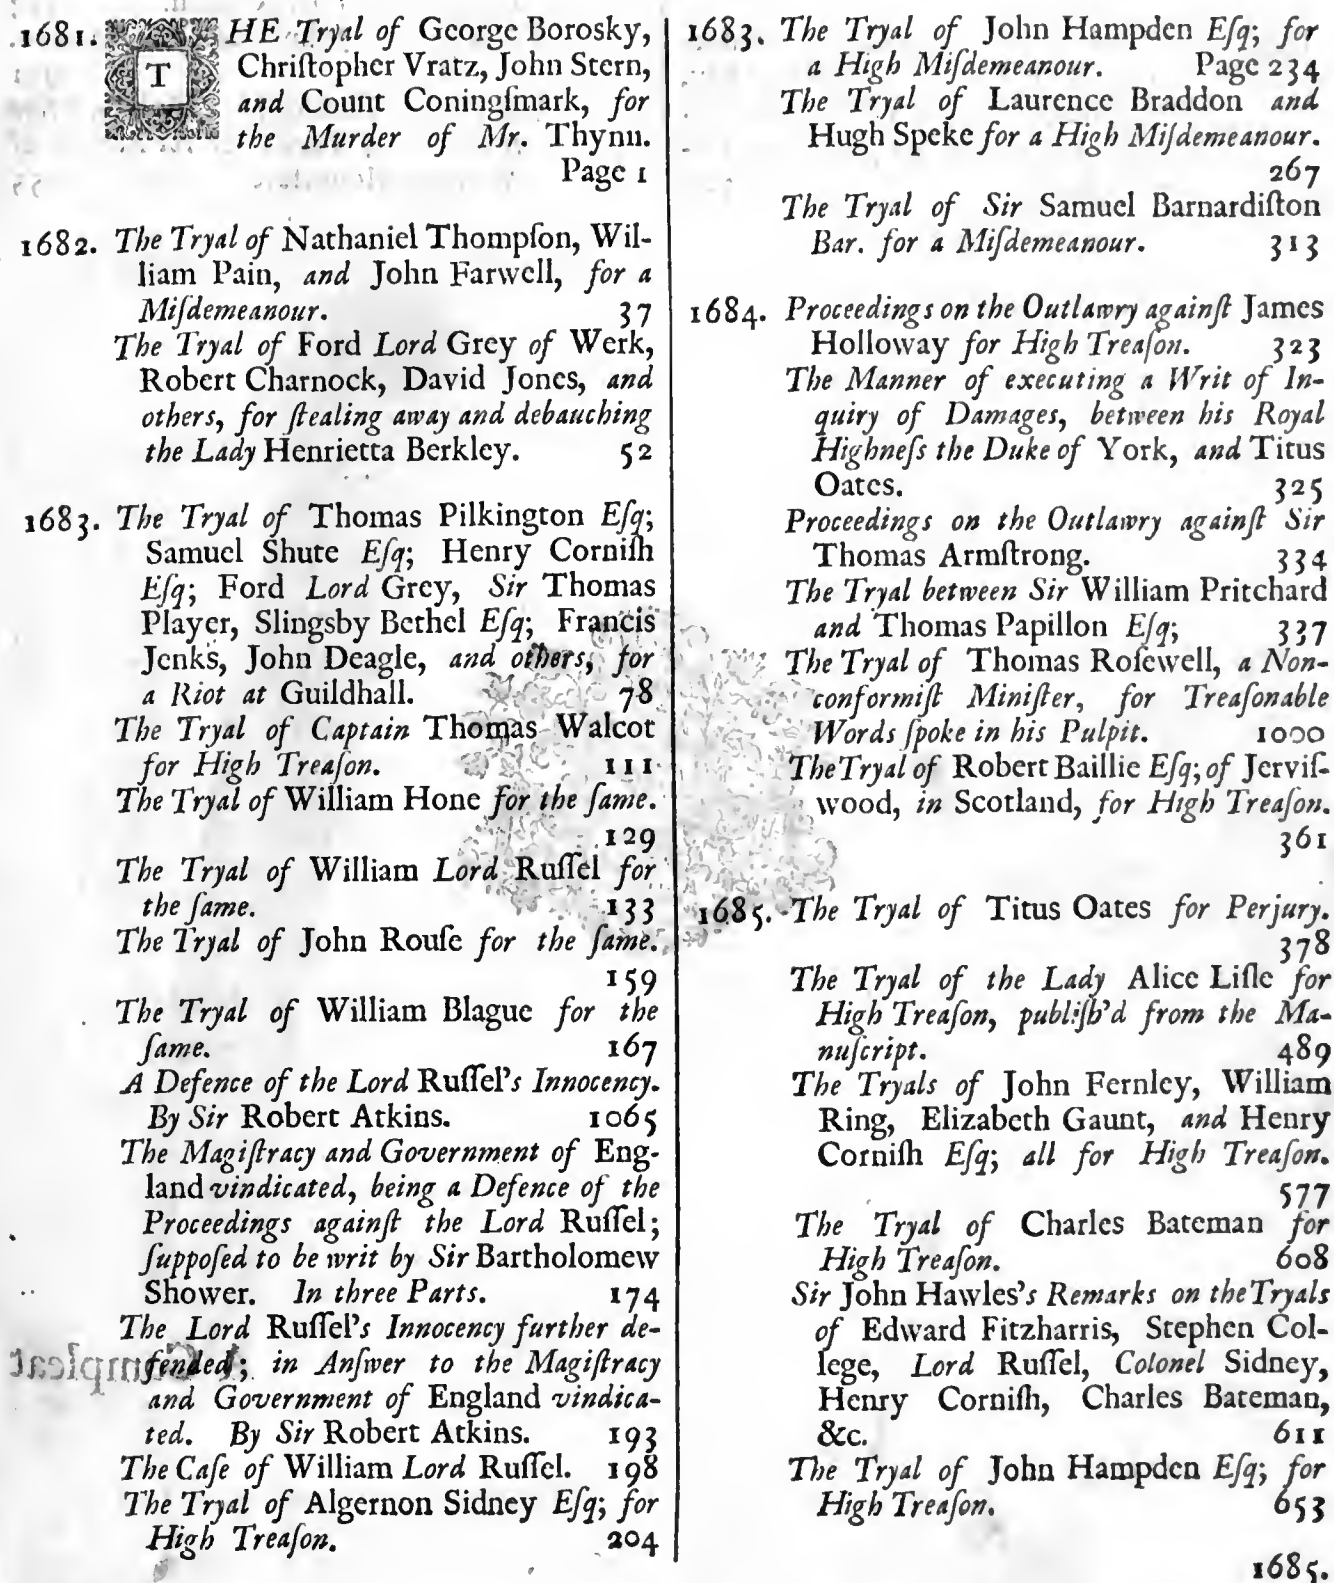 1681. THE Tryal of George Borosky,
Chriſtopher Vratz, John Stern,
and Count Coningſmark, for
the Murder of Mr. Thynn.
Page 1
1682. The Tryal of Nathaniel Thompſon, Wil-
liam Pain, and John Farwell, for a
Miſdemeanour. 37
The Tryal of Ford Lord Grey of Werk,
Robert Charnock, David Jones, and
others, for ſtealing away and debauching
the Lady Henrietta Berkley. 52
1683. The Tryal of Thomas Pilkington Eſq;
Samuel Shute Eſq; Henry Corniſh
Eſq; Ford Lord Grey, Sir Thomas
Player, Slingsby Bethel Eſq; Francis
Jenks, John Deagle, and others, for
a Riot at Guildhall. 78
The Tryal of Captain Thomas Walcot
for High Treaſon. 111
The Tryal of William Hone for the ſame.
129
The Tryal of William Lord Ruſſel for
the ſame. 133
The Tryal of John Rouſe for the ſame.
159
The Tryal of William Blague for the
ſame. 167
A Defence of the Lord Ruſſel's Innocency.
By Sir Robert Atkins. 1065
The Magiſtracy and Government of Eng-
land vindicated, being a Defence of the
Proceedings againſt the Lord Ruſſel;
ſuppoſed to be writ by Sir Bartholomew
Shower. In three Parts. 174
The Lord Ruſſel's Innocency further de-
fended; in Anſwer to the Magiſtracy
and Government of England vindica-
ted. By Sir Robert Atkins. 193
The Caſe of William Lord Ruſſel. 198
The Tryal of Algernon Sidney Eſq; for
High Treaſon. 204
1683. The Tryal of John Hampden Eſq; for
a High Miſdemeanour. Page 234
The Tryal of Laurence Braddon and
Hugh Speke for a High Miſdemeanour.
267
The Tryal of Sir Samuel Barnardiſton
Bar. for a Miſdemeanour. 313
1684. Proceedings on the Outlawry againſt James
Holloway for High Treaſon. 323
The Manner of executing a Writ of In-
quiry of Damages, between his Royal
Highneſs the Duke of York, and Titus
Oates. 325
Proceedings on the Outlawry againſt Sir
Thomas Armſtrong. 334
The Tryal between Sir William Pritchard
and Thomas Papillon Eſq; 337
The Tryal of Thomas Roſewell, a Non-
conformiſt Miniſter, for Treaſonable
Words ſpoke in his Pulpit. 1000
The Tryal of Robert Baillie Eſq; of Jerviſ-
wood, in Scotland, for High Treaſon.
361
1685. The Tryal of Titus Oates for Perjury.
378
The Tryal of the Lady Alice Liſle for
High Treaſon, publiſh'd from the Ma-
nuſcript. 489
The Tryals of John Fernley, William
Ring, Elizabeth Gaunt, and Henry
Corniſh Eſq; all for High Treaſon.
577
The Tryal of Charles Bateman for
High Treaſon. 608
Sir John Hawles's Remarks on the Tryals
of Edward Fitzharris, Stephen Col-
lege, Lord Ruſſel, Colonel Sidney,
Henry Corniſh, Charles Bateman,
&c. 611
The Tryal of John Hampden Eſq; for
High Treaſon. 653
1685.